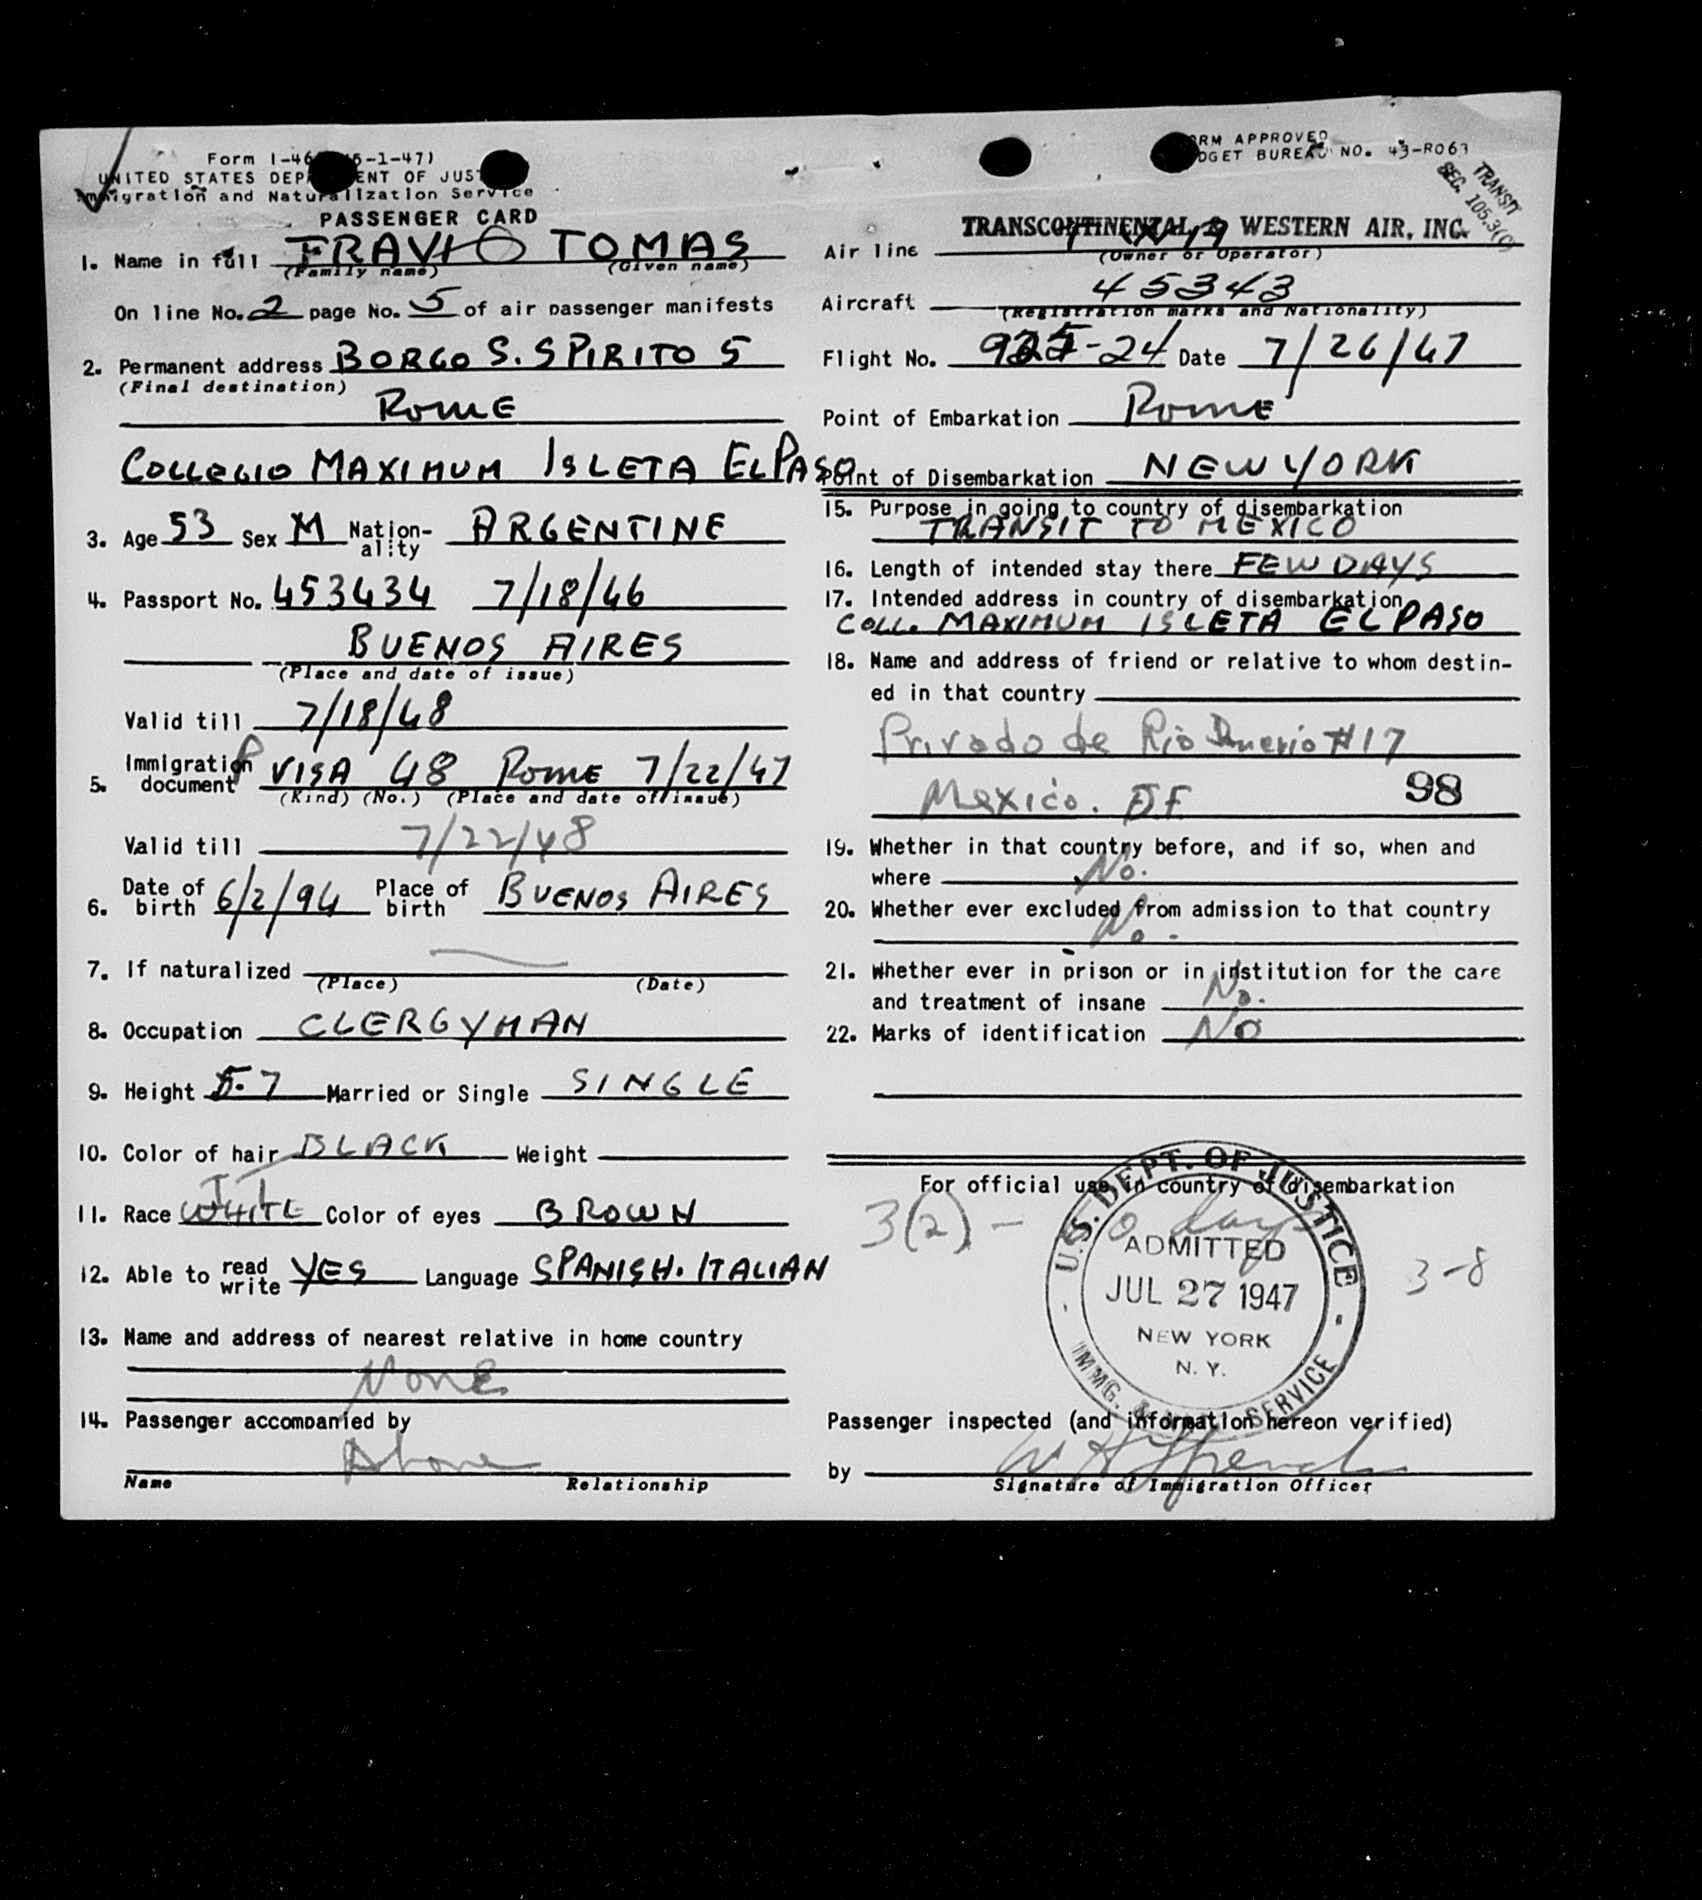 UNITED STATES DEP ENT OF JUST
Immigration and Naturalization Service
PASSENGER CARD
1. Name in full TRAVI O TOMAS
(Family name) (Given name)
On line No. 2 page No. 5 of air passenger manifests
2. Permanent address BORGO S. SPIRITO 5
(Final destination)
ROME
COLLEGIO MAXIMUM ISLETA EL PASO
3. Age 53 Sex M Nation-
ality ARGENTINE
4. Passport No. 453434 7/18/46
BUENOS AIRES
(Place and date of issue)
Valid till 7/18/48
5. Immigration
document P VISA 48 ROME 7/22/47
(Kind) (No.) (Place and date of issue)
Valid till 7/22/48
6. Date of
birth 6/2/94 Place of
birth BUENOS AIRES
7. If naturalized
(Place) (Date)
8. Occupation CLERGYMAN
9. Height 5.7 Married or Single SINGLE
10. Color of hair BLACK Weight
11. Race WHITE Color of eyes BROWN
12. Able to read
write YES Language SPANISH. ITALIAN
13. Name and address of nearest relative in home country
None
14. Passenger accompanied by
Alone
Name Relationship
FORM APPROVED
BUDGET BUREAU NO. 43-R063
TRANSIT
SEC. 105.3(C)
TRANSCONTINENTAL & WESTERN AIR, INC.
Air line
(Owner or Operator)
Aircraft 45343
(Registration marks and Nationality)
Flight No. 925-24 Date 7/26/47
Point of Embarkation ROME
Point of Disembarkation NEW YORK
15. Purpose in going to country of disembarkation
TRANSIT TO MEXICO
16. Length of intended stay there FEW DAYS
17. Intended address in country of disembarkation
COLL. MAXIMUM ISLETA EL PASO
18. Name and address of friend or relative to whom destin-
ed in that country
Privado de Rio #17
Mexico. D.F. 98
19. Whether in that country before, and if so, when and
where No.
20. Whether ever excluded from admission to that country
No.
21. Whether ever in prison or in institution for the care
and treatment of insane No.
22. Marks of identification No
For official use in country of disembarkation
3(2) - days
U.S. DEPT. OF JUSTICE
ADMITTED
JUL 27 1947
NEW YORK
N. Y.
IMMG. & NATZ. SERVICE
3-8
Passenger inspected (and information hereon verified)
by
Signature of Immigration Officer